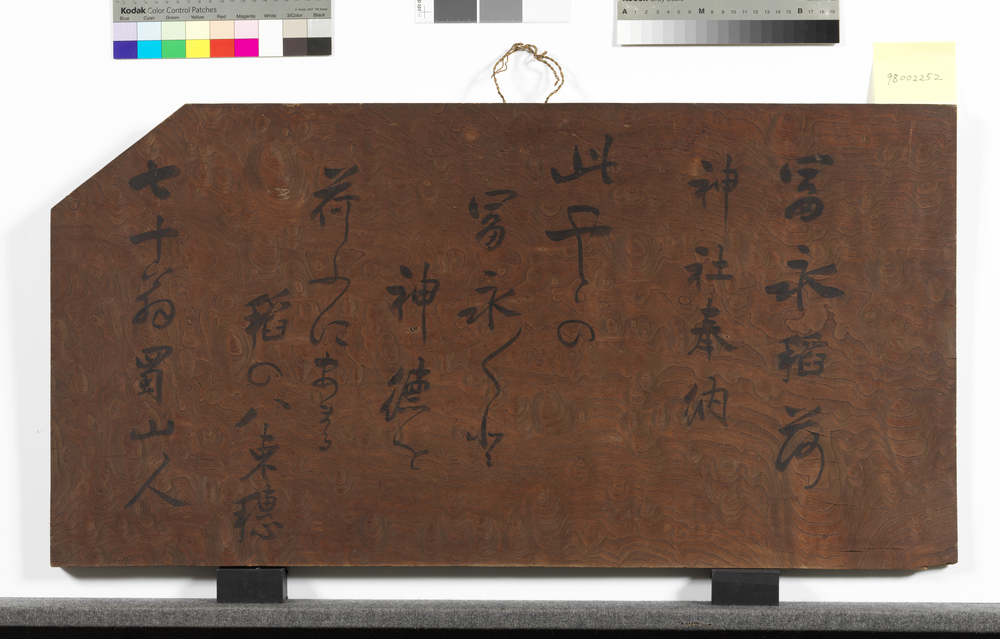 Kodak Color Control Patches
Blue Cyan Green Yellow Red Magenta White 3/Color Black
A 1 2 3 4 5 6 M 8 9 10 11 12 13 14 15 B 17 18 19
98002252
冨永稲荷
神社奉納
此 との
冨永く
神徳を
荷ふにあまる
稲の八束穂
七十翁蜀山人